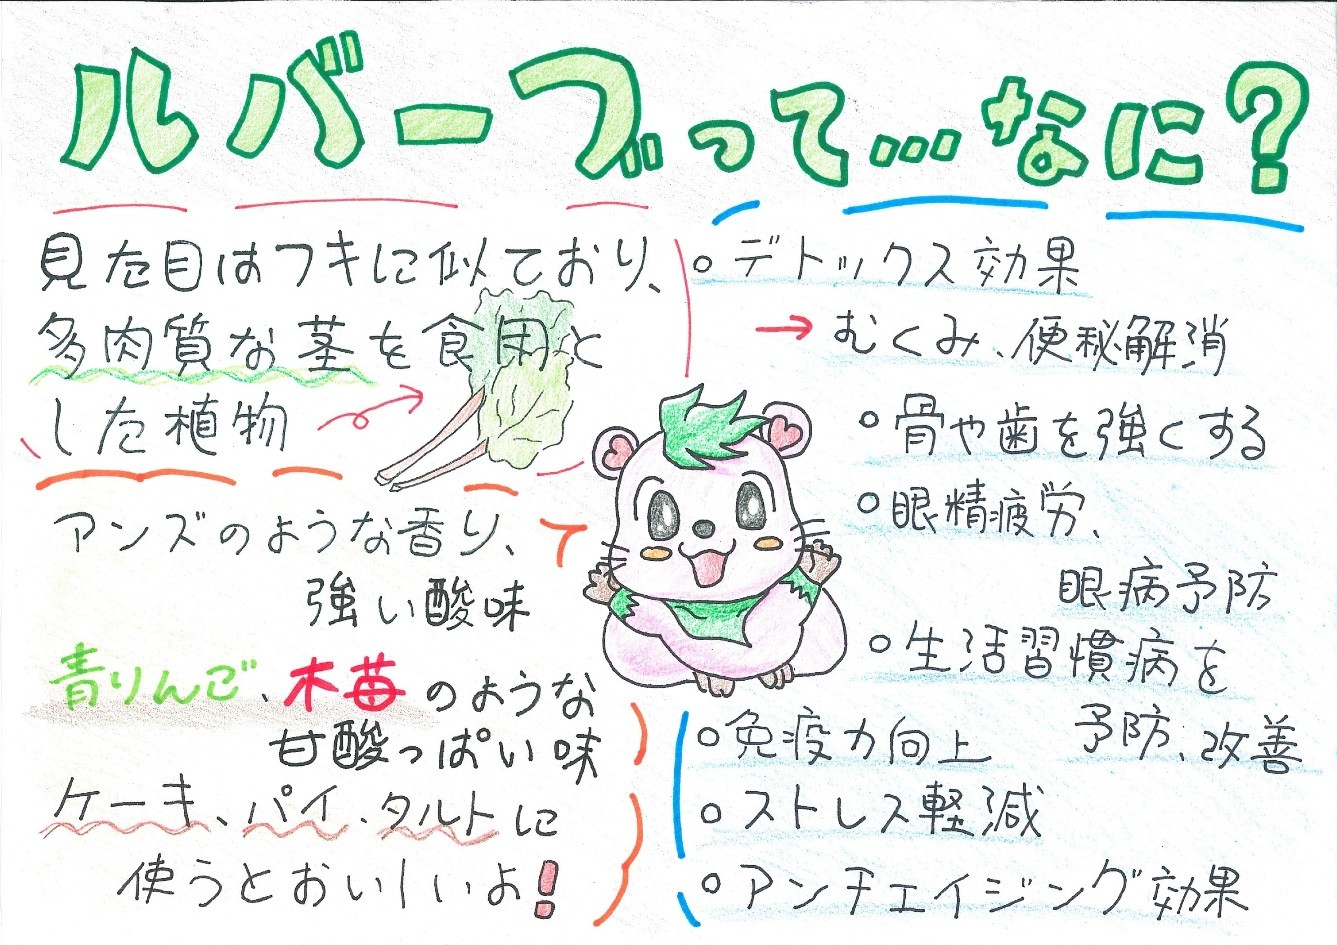 ルバーブって…なに?
見た目はフキに似ており、
多肉質な茎を食用と
した植物
アンズのような香り、
強い酸味
青りんご、木苺のような
甘酸っぱい味
ケーキ、パイ、タルトに
使うとおいしいよ!
○デトックス効果
→むくみ、便秘解消
○骨や歯を強くする
○眼精疲労、
眼病予防
○生活習慣病を
予防、改善
○免疫力向上
○ストレス軽減
○アンチエイジング効果